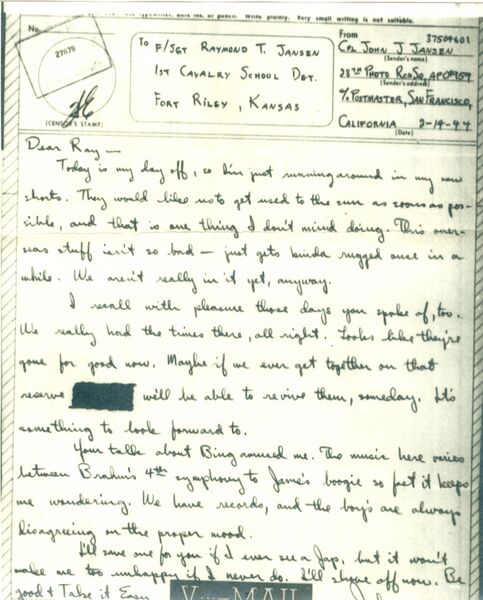 Print the complete address in plain block letters in the panel below, and your return address in the space provided. Use typewriter, dark ink, or pencil. Write plainly. Very small writing is not suitable.
No.
27879
(CENSOR'S STAMP)
To F/SGT RAYMOND T. JANSEN
1ST CAVALRY SCHOOL DET.
FORT RILEY, KANSAS
From 37509601
CPL JOHN J JANSEN
(Sender's name)
28TH PHOTO RCN SQ, APO #959
(Sender's address)
% POSTMASTER, SAN FRANCISCO,
CALIFORNIA 2-14-44
(Date)
Dear Ray —
Today is my day off, so I'm just running around in my new
shorts. They would like us to get used to the sun as soon as pos-
sible, and that is one thing I don't mind doing. This over-
seas stuff isn't so bad — just gets kinda rugged once in a
while. We aren't really in it yet, anyway.
I recall with pleasure those days you spoke of, too.
We really had the times there, all right. Looks like they're
gone for good now. Maybe if we ever get together on that
reserve we'll be able to revive them, someday. It's
something to look forward to.
Your talk about Bing amused me. The music here varies
between Brahm's 4th symphony to Jame's boogie so fast it keeps
me wondering. We have records, and the boys are always
disagreeing on the proper mood.
I'll save one for you if I ever see a Jap, but it won't
make me too unhappy if I never do. I'll shove off now. Be
good + Take it Easy
V-MAIL